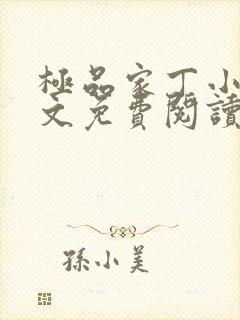 極品家丁小
文免費閱讀
孫小美